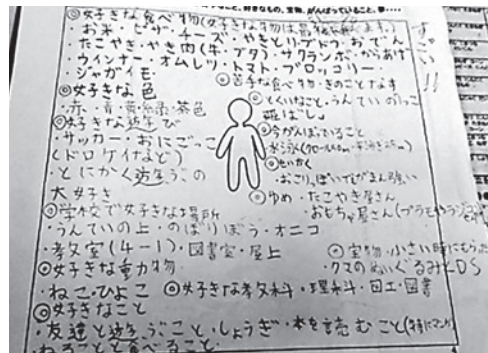 ◎好きな食べ物(好きな物は最後に
・お米・ピザ・チーズ・やきとり・ブドウ・おでん
・たこやき・やき肉(牛・ブタ)・サクランボ・からあげ
・ウインナー・オムレツ・トマト・ブロッコリー
・ジャガイモ
すごい!!
◎苦手な食べ物・きのことなす
◎好きな色
・赤・青・黄・緑・茶色
◎とくいなこと・うんていの
◎好きな遊び
・サッカー・おにごっこ
(ドロケイなど)
・とにかく遊ぶの
大好き
◎今がんばっていること
・水泳
◎せいかく
・おこりっぽい
◎ゆめ・たこやき屋さん
・おもちゃ屋さん
◎学校で好きな場所
・うんていの上・のぼりぼう・オニコ
・教室(4-1)・図書室・屋上
◎宝物・小さい時にもらった
クマのぬいぐるみとDS
◎好きな動物
・ねこ・ひよこ
◎好きな教科・理科・図工・図書
◎好きなこと
・友達と遊ぶこと・しょうぎ・本を読むこと(特にマンガ)
・ねることと食べること